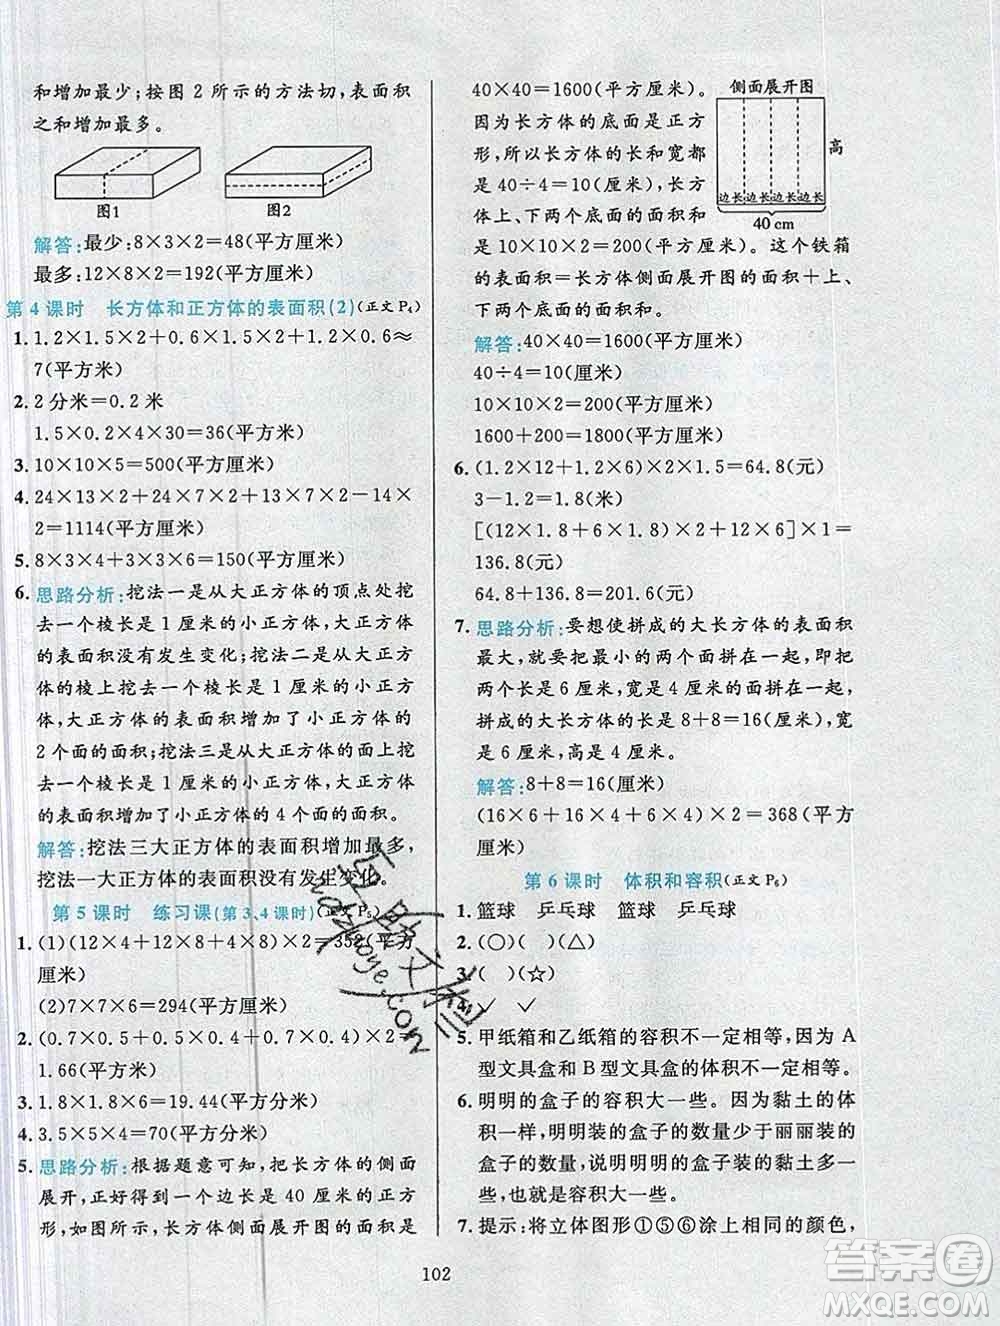 和增加最少;按图 2 所示的方法切,表面积
之和增加最多。
图1
图2
解答:最少:8×3×2=48(平方厘米)
最多:12×8×2=192(平方厘米)
第 4 课时 长方体和正方体的表面积(2)(正文 P₄)
1. 1.2×1.5×2+0.6×1.5×2+1.2×0.6≈
7(平方米)
2. 2分米=0.2米
1.5×0.2×4×30=36(平方米)
3. 10×10×5=500(平方厘米)
4. 24×13×2+24×7×2+13×7×2-14×
2=1114(平方厘米)
5. 8×3×4+3×3×6=150(平方厘米)
6. 思路分析:挖法一是从大正方体的顶点处挖
去一个棱长是 1 厘米的小正方体,大正方体
的表面积没有发生变化;挖法二是从大正方
体的棱上挖去一个棱长是 1 厘米的小正方
体,大正方体的表面积增加了小正方体的
2 个面的面积;挖法三是从大正方体上挖去
一个棱长是 1 厘米的小正方体,大正方体的
表面积增加了小正方体的 4 个面的面积。
解答:挖法三大正方体的表面积增加最多,
挖法一大正方体的表面积没有发生变化。
第 5 课时 练习课(第3、4课时)(正文 P₅)
1. (1)(12×4+12×8+4×8)×2=352(平方
厘米)
(2)7×7×6=294(平方厘米)
2. (0.7×0.5+0.7×0.4+0.5×0.4)×2=
1.66(平方米)
3. 1.8×1.8×6=19.44(平方分米)
4. 3.5×5×4=70(平方米)
5. 思路分析:根据题意可知,把长方体的侧面
展开,正好得到一个边长是 40 厘米的正方
形,如图所示,长方体侧面展开图的面积是
40×40=1600(平方厘米)。
因为长方体的底面是正方
形,所以长方体的长和宽都
是 40÷4=10(厘米),长方
体上、下两个底面的面积和
是 10×10×2=200(平方厘米)。这个铁箱
的表面积=长方体侧面展开图的面积+上、
下两个底面的面积和。
侧面展开图
高
边长 边长 边长 边长
40 cm
解答:40×40=1600(平方厘米)
40÷4=10(厘米)
10×10×2=200(平方厘米)
1600+200=1800(平方厘米)
6. (1.2×12+1.2×6)×2×1.5=64.8(元)
3-1.2=1.8(米)
[(12×1.8+6×1.8)×2+12×6]×1=
136.8(元)
64.8+136.8=201.6(元)
7. 思路分析:要想使拼成的大长方体的表面积
最大,就要把最小的两个面拼在一起,即把
两个长是 6 厘米,宽是 4 厘米的面拼在一起,
拼成的大长方体的长是 8+8=16(厘米),宽
是 6 厘米,高是 4 厘米。
解答:8+8=16(厘米)
(16×6+16×4+6×4)×2=368(平方
厘米)
第 6 课时 体积和容积(正文 P₆)
1. 篮球 乒乓球 篮球 乒乓球
2. (○)( )(△)
3. ( )(☆)
4. ✓ ✓
5. 甲纸箱和乙纸箱的容积不一定相等,因为 A
型文具盒和 B 型文具盒的体积不一定相等。
6. 明明的盒子的容积大一些。因为黏土的体
积一样,明明装的盒子的数量少于丽丽装的
盒子的数量,说明明明的盒子装的黏土多一
些,也就是容积大一些。
7. 提示:将立体图形①⑤⑥涂上相同的颜色,
102
答案圈
MXQE.COM